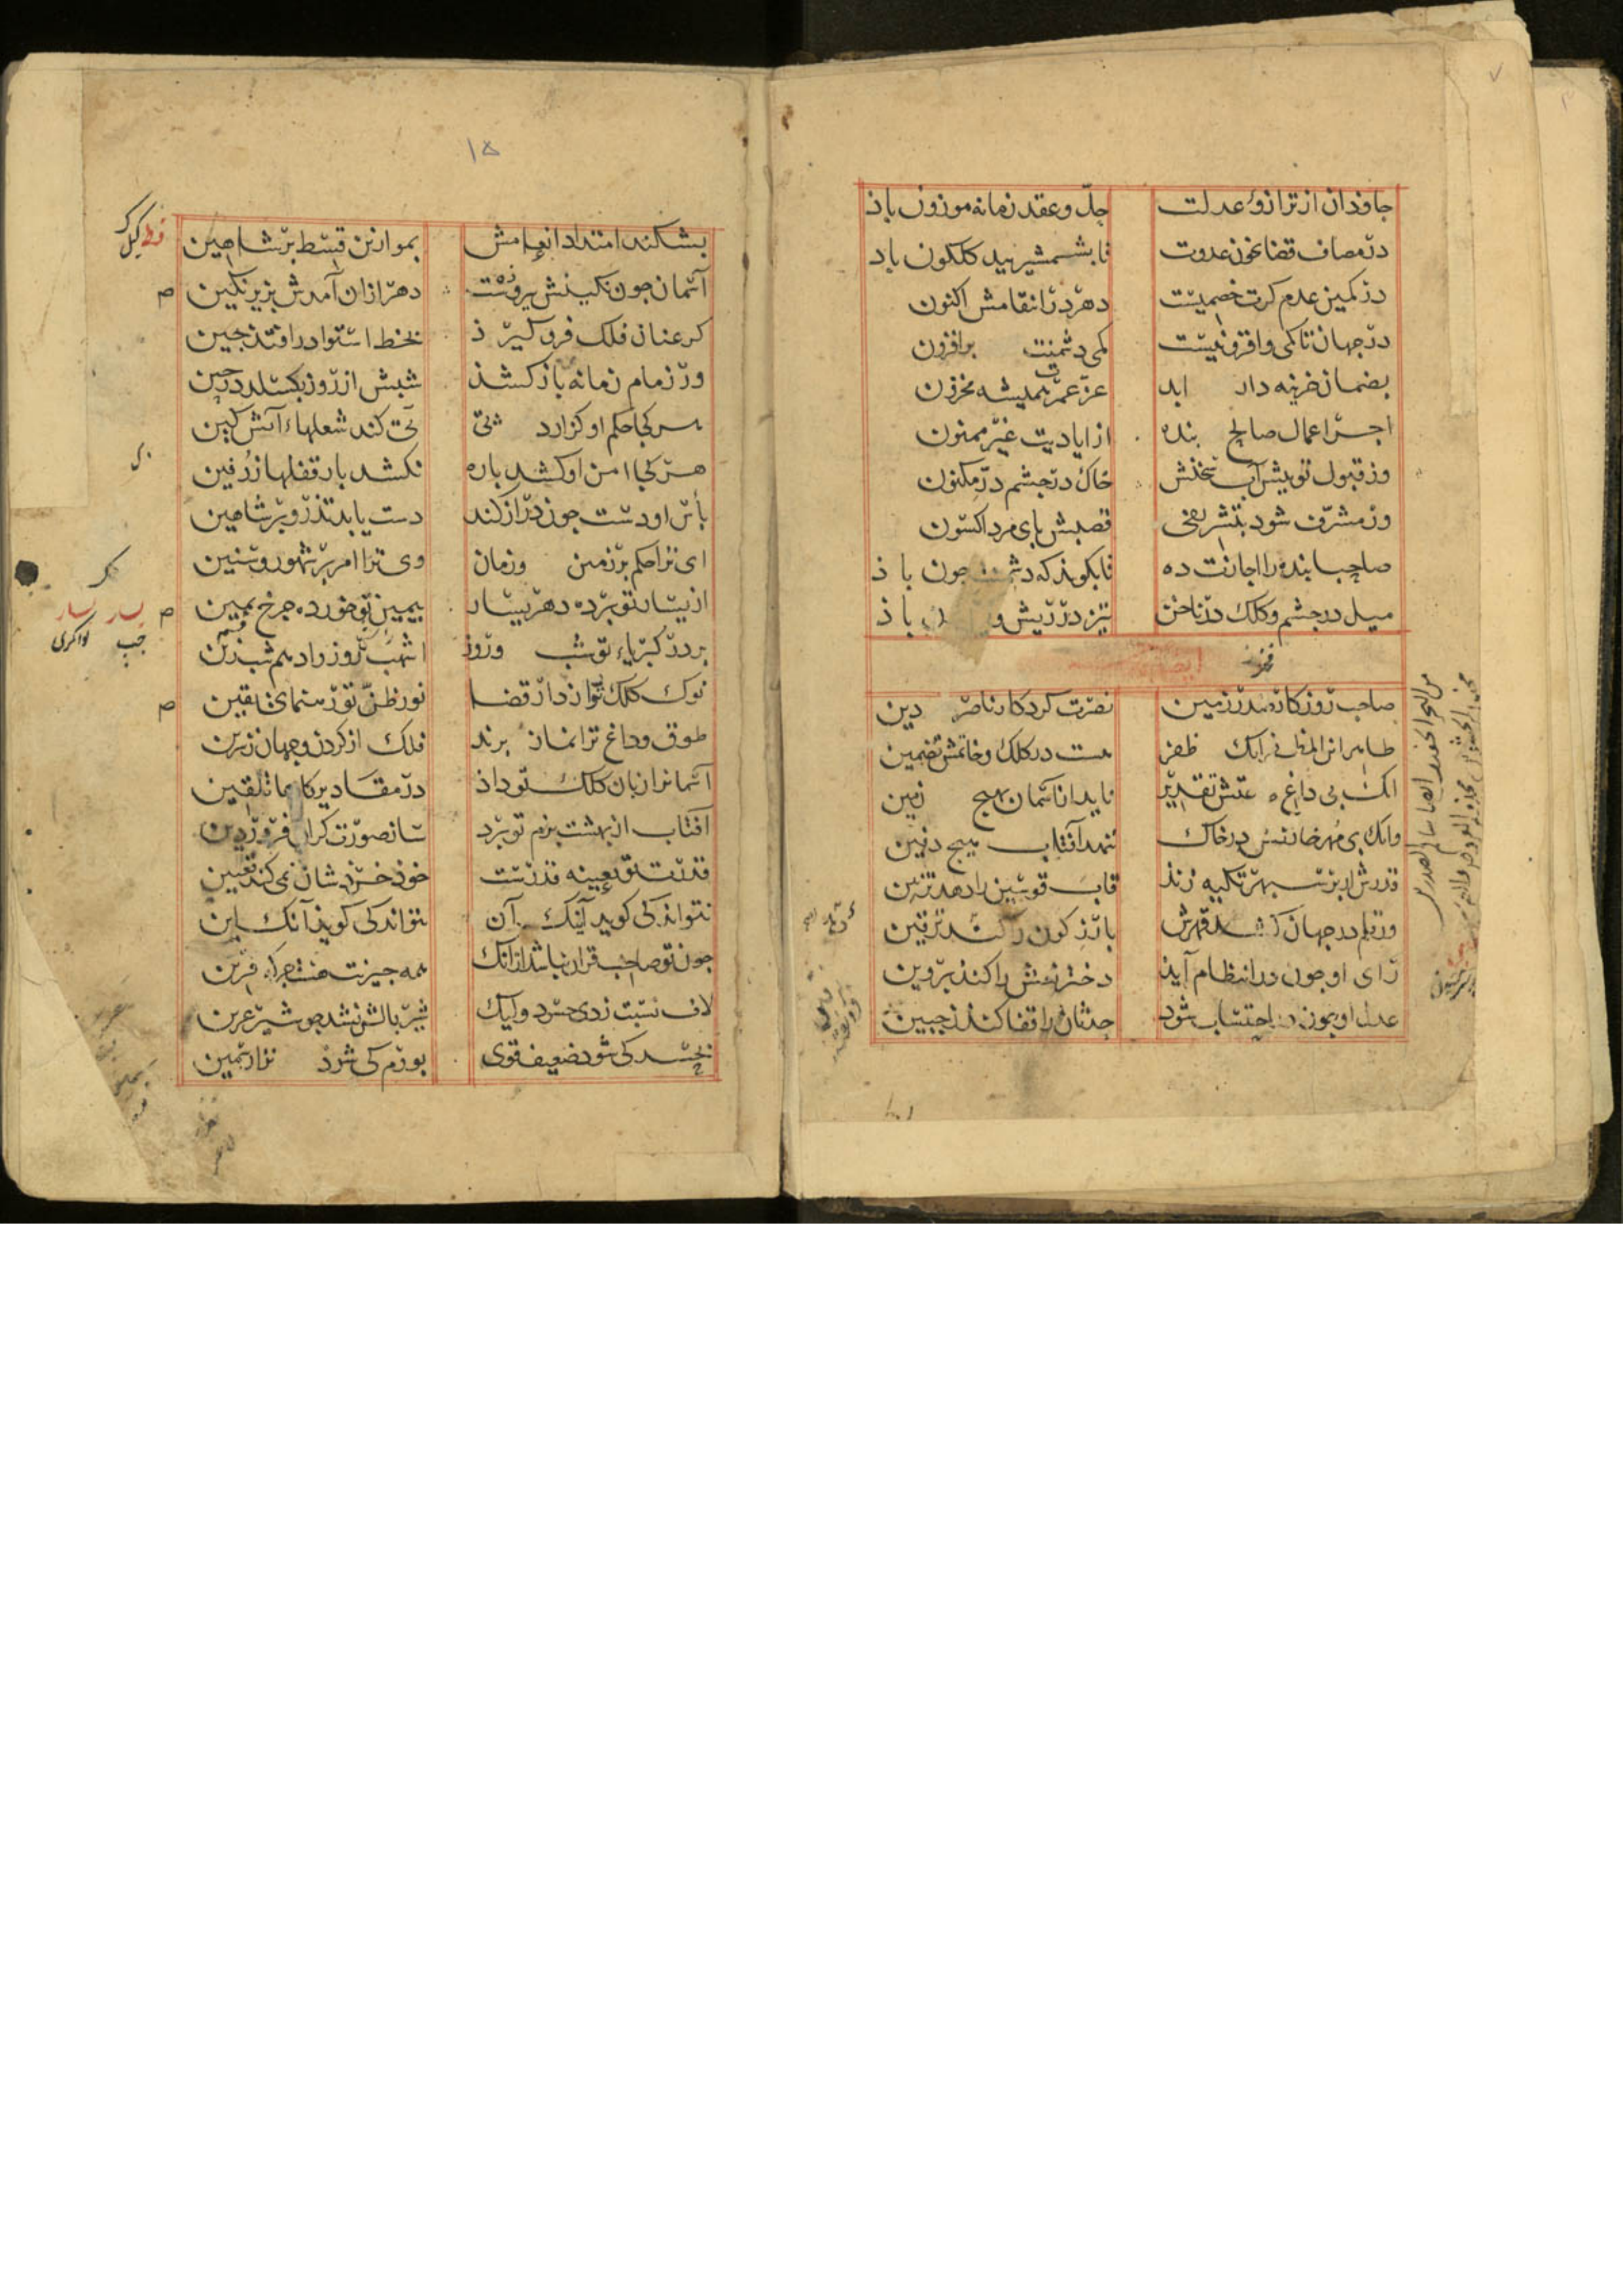 جاوذان از ترازوء عدلت حلّ و عقد زمانه موزون باذ
در مصاف قضا بخون عدوت تا بشمشیر بید کلکون باد
در کمین عدم کرت خصمیست دهر در انتقامش اکنون
در جهان تا کمی و افزونیست کمی دشمنت بر افزون
بضمان خزینه دار ابد عزّ عمرت همیشه مخزون
اجر اعمال صالح بنده از ایادیت غیر ممنون
وز قبول تو پیش آب سخنش خاک در جشم درّ مکنون
ور مشرّف شود بتشریفی قصبش بای مرد اکسون
صاحبا بنده را اجازت ده تا بکوید که دشمنت جون باذ
میل در جشم و کلک در ناخن تیز در ریش و باذ
صاحب روزکار صدر زمین نصرت کردکار ناصر دین
طاهر ابن المظفر انک ظفر هست در کلک و خاتمش تضمین
انک بی داغ طاعتش تقدیر ناید از آسمان بهیج زمین
وانک بی مهر خازنش در خاک ننهد آفتاب هیج دفین
قدرش ار بر سبهر تکیه زند قاب قوسین را دهد تزیین
ور در جهان کشد قهرش بارز کون را کند ترقین
رای او جون در انتظام آید دختر نعش را کند بروین
عدل او جون در احتساب شود حدثان را قفا کند ز جبین
۱۵
بشکند امتداد انعامش بموازین قسط بر شاهین
آسمان جون نکینش بیروزست دهر ازان آمدش بزیر نکین
کر عنان فلک فرو کیرذ بخط استوا در افتد جین
ور زمام زمانه باز کشذ شبش از روز بکسلد در حین
هر کجا حکم او کزارد بی کند شعلهاء آتش کین
هر کجا امن او کشد باره نکشد بار قفلها زرفین
بأس او دست جون دراز کند دست یابد تذرو بر شاهین
ای ترا حکم بر زمین و زمان وی ترا امر بر شهور و سنین
از یسار تو برده دهر یسار بیمین تو خورده جرخ یمین
بر در کبریاء تو شب و روز اشهب روز و ادهم شب زین
نوک کلک تو راز دار قضا نور ظنّ تو رهنمای یقین
طوق و داغ ترا نماز برند فلک از کردن و جهان ز سرین
آسمانرا زبان کلک تو داذ در مقادیر کارها تلقین
آفتاب از بهشت بزم تو برد ساز صورت کران فروردین
قدرتت بعینه قدرست خوذ خرذشان نمی کند تعیین
نتواند کی کوید اینک آن نتواند کی کوید آنک این
جون تو صاحب قران نباشد ازانک همه جیزت هست جز که قرین
لاف نسبت زدی حسود ولیک شیر بالش نشد جو شیر عرین
بجسد کی شود ضعیف قوی بورم کی شود نزار سمین